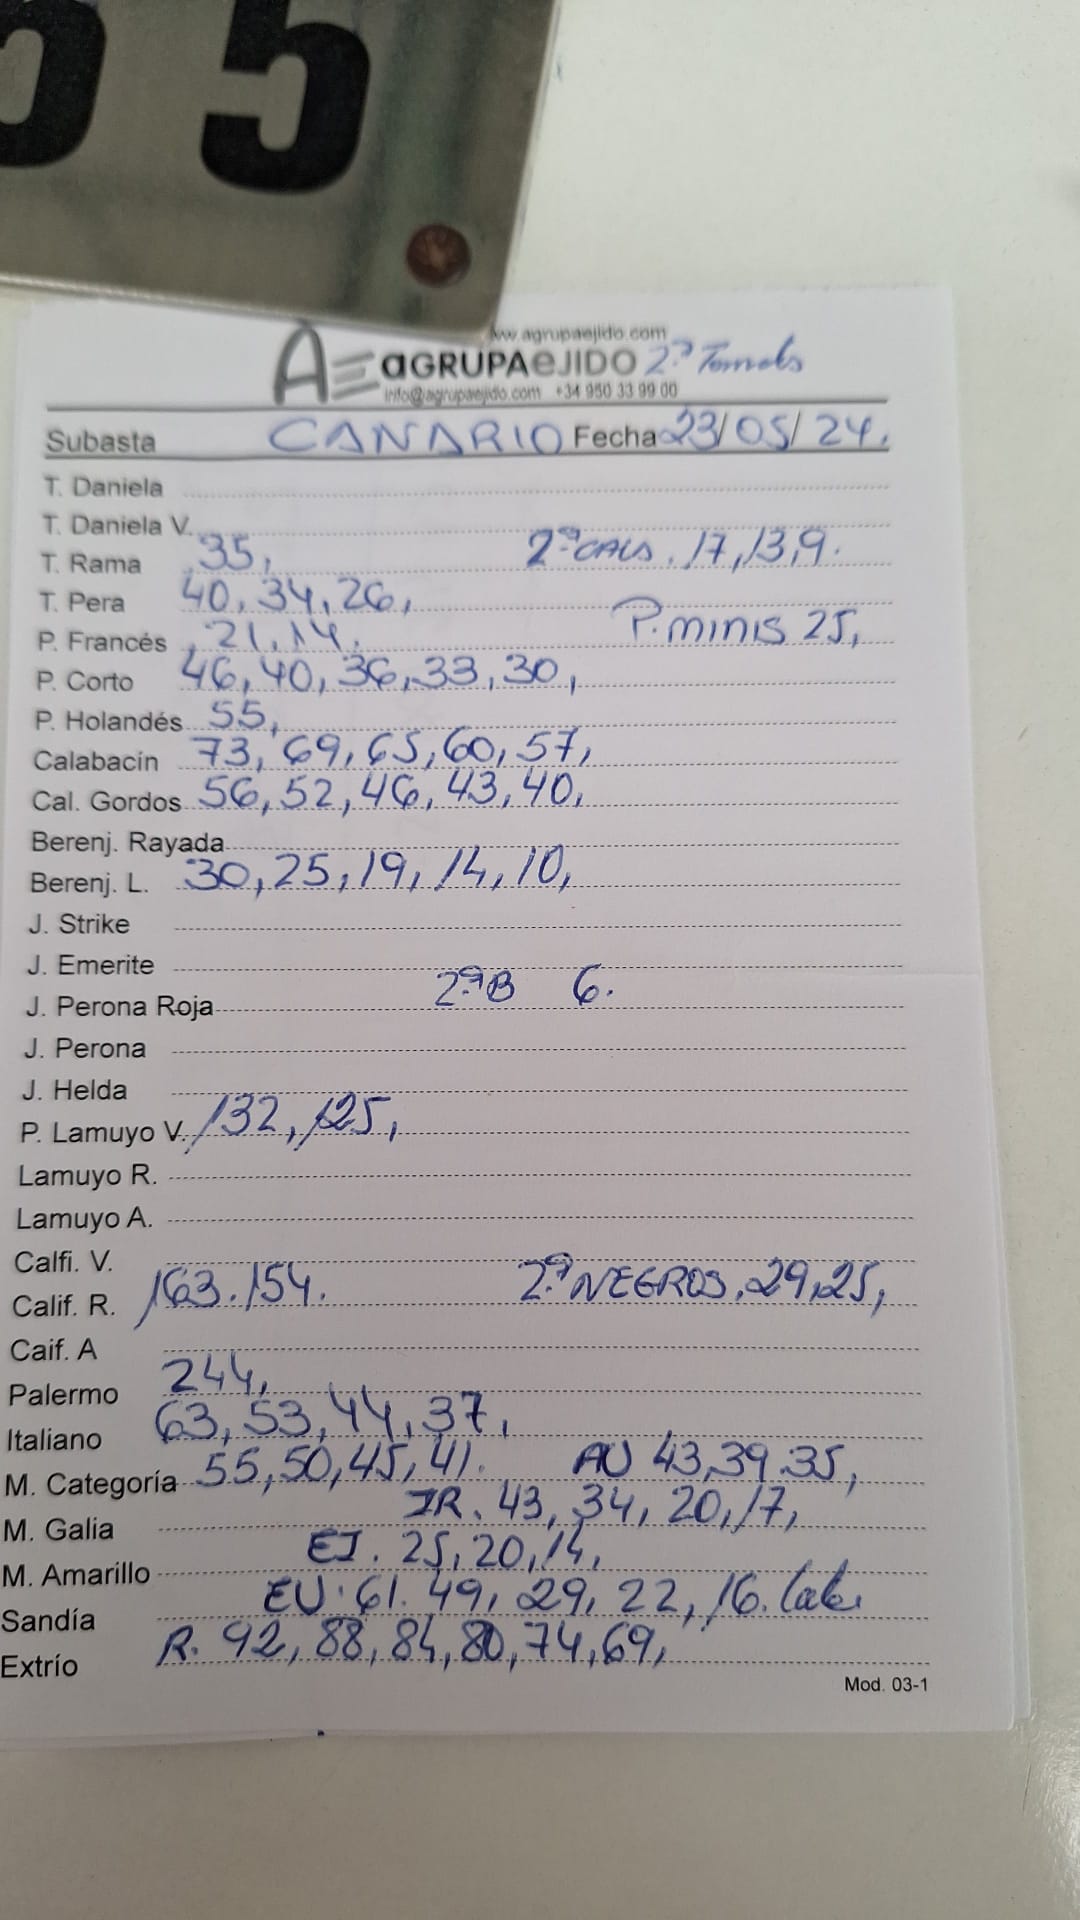 55
www.agrupaejido.com
AE aGRUPAeJIDO 2ª
info@agrupaejido.com +34 950 33 99 00
Subasta CANARIO Fecha 23/05/24.
T. Daniela
T. Daniela V.
T. Rama 35, 2ª CALS. 17, 13, 9.
T. Pera 40, 34, 26,
P. Francés 21, 14. P. minis 25,
P. Corto 46, 40, 36, 33, 30,
P. Holandés 55,
Calabacín 73, 69, 65, 60, 57,
Cal. Gordos 56, 52, 46, 43, 40,
Berenj. Rayada
Berenj. L. 30, 25, 19, 14, 10,
J. Strike
J. Emerite
J. Perona Roja 2ª B 6.
J. Perona
J. Helda
P. Lamuyo V. 132, 125,
Lamuyo R.
Lamuyo A.
Calfi. V.
Calif. R. 163. 154. 2ª NEGROS, 29, 25,
Caif. A
Palermo 244,
Italiano 63, 53, 44, 37,
M. Categoría 55, 50, 45, 41. AU 43, 39. 35,
M. Galia IR. 43, 34, 20, 17,
M. Amarillo EJ. 25, 20, 14,
Sandía EU. 61. 49, 29, 22, 16.
Extrío R. 92, 88, 84, 80, 74, 69,
Mod. 03-1